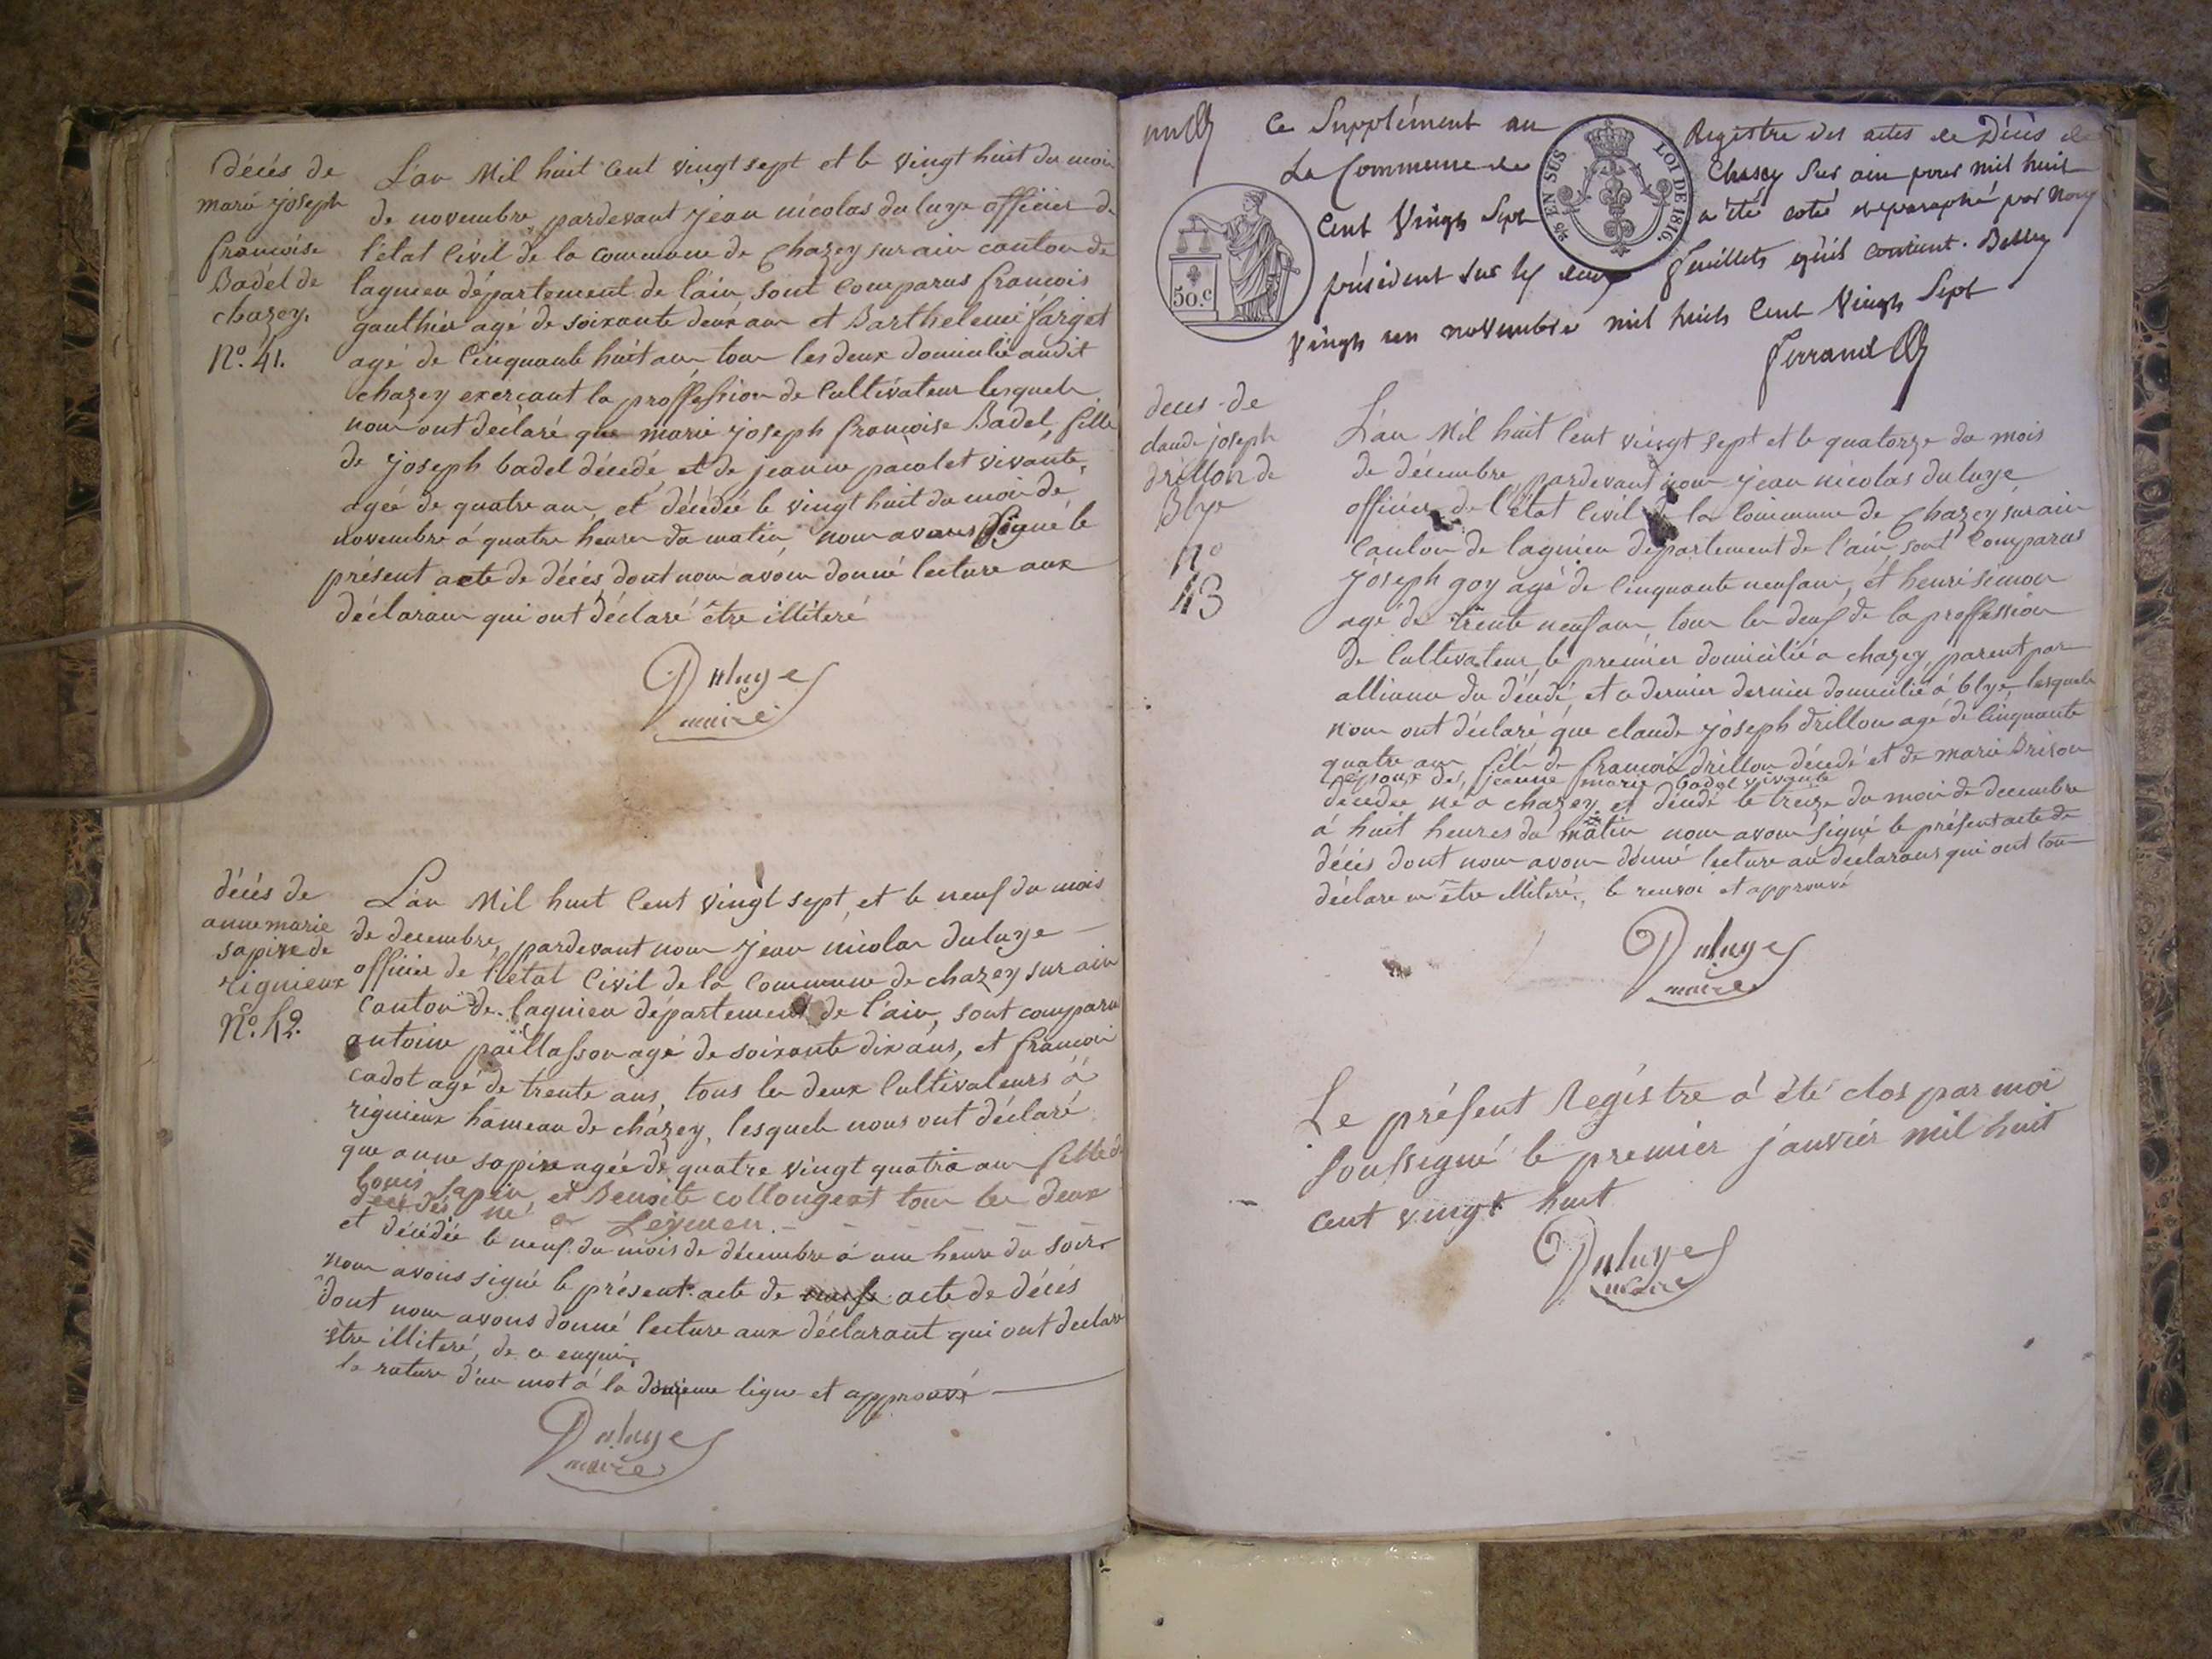 décés de
marie joseph
françoise
Badel de
chazey.
N.o 41.
L'an Mil huit Cent vingt sept et le vingt huit du mois
de novembre pardevant jean nicolas duluye officier de
l'état Civil de la commune de Chazey sur ain canton de
lagnieu département de l'ain, sont comparus françois
gauthier agé de soixante deux ans et Barthelemi farget
agé de Cinquante huit ans tous les deux domicilié audit
chazey exercant la proffession de Cultivateur lesquels
nous ont déclaré que marie joseph françoise Badel, fille
de joseph badel décédé, et de jeanne pacolet vivante,
agée de quatre ans, et décédée le vingt huit du mois de
novembre à quatre heures du matin, nous avons signé le
présent acte de décés, dont nous avons donné lecture aux
déclarans qui ont déclaré être illiteré
Duluye
maire
décés de
anne marie
sapin de
rignieux
N.o 42.
L'an Mil huit Cent vingt sept, et le neuf du mois
de decembre, pardevant nous jean nicolas duluye
officier de l'état Civil de la Commune de chazey sur ain
Canton de lagnieu département de l'ain, sont comparu
antoine paillasson agé de soixante dix ans, et françois
cadot agé de trente ans, tous les deux Cultivateurs à
rignieux hameau de chazey, lesquels nous ont déclaré
que anne sapin agée de quatre vingt quatre ans fille de
Louis Sapin et Benoite collongeat tous les deux
décédés né a Leymen.
et décédée le neuf du mois de décembre à une heure du soir
nous avons signé le présent acte de acte de décés
dont nous avons donné lecture aux déclarant qui ont declaré
être illiteré, de ce enquis,
la rature d'un mot à la ligne et approuvé
Duluye
maire
Ce Supplément au Registre des actes de Décès de
La Commune de Chazey Sur ain pour mil huit
Cent Vingt Sept a été coté et paraphé par Nous
président sur les deux feuillets qu'il contient. Belley
Vingt un novembre mil huit Cent Vingt Sept
Ferrand
5% EN SUS
LOI DE 1816.
50.c
deces de
claude joseph
drillon de
Blye
N.o
43
L'an Mil huit Cent vingt sept et le quatorze du mois
de décembre, pardevant nous jean nicolas duluye
officier de l'état Civil de la Commune de Chazey sur ain
Canton de lagnieu département de l'ain, sont Comparus
joseph goy agé de Cinquante neuf ans, et henri simon
agé de trente neuf ans, tous les deux de la proffession
de Cultivateur, le premier domicilié a chazey, parent par
alliance du décédé, et ce dernier dernier domicilié à blye, lesquels
nous ont déclaré que claude joseph drillon agé de Cinquante
quatre ans fils de françois drillon décédé et de marie Brison
époux de jeanne marie badel vivante
décédée né a chazey et décédé le treize du mois de decembre
à huit heures du matin nous avons signé le présent acte de
décés dont nous avons donné lecture au déclarans qui ont tous
déclare en être illiteré, le renvoi et approuvé
Duluye
maire
Le présent Registre a été clos par moi
soussigné le premier janvier mil huit
cent vingt huit
Duluye
maire